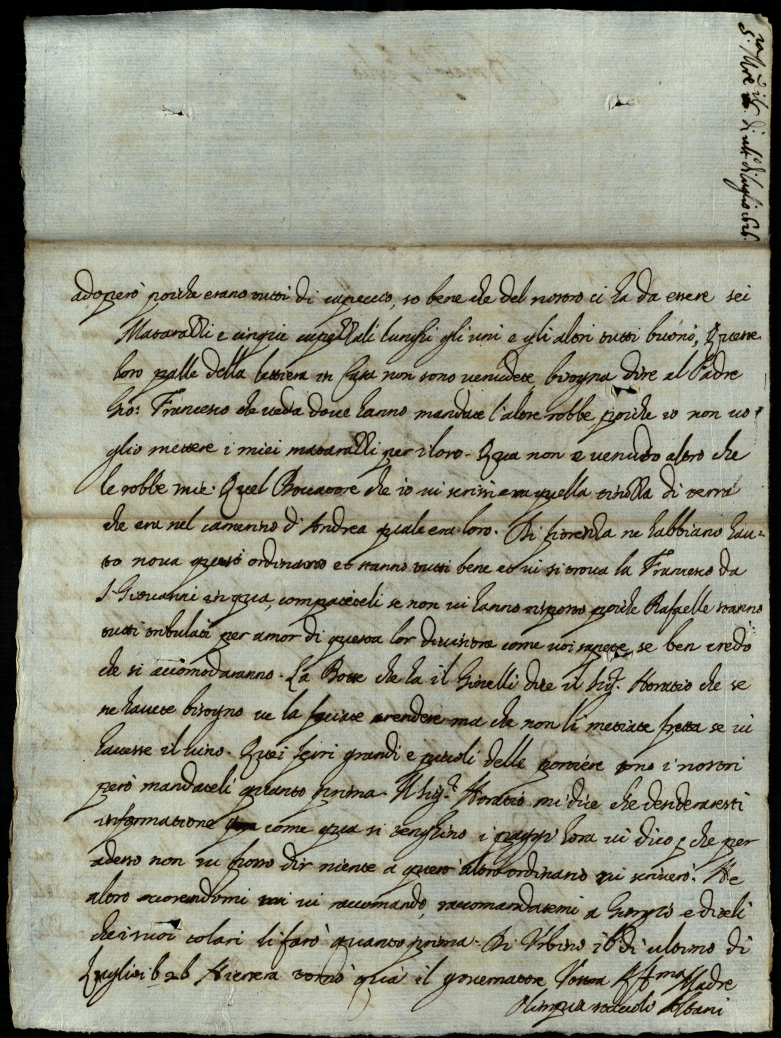 adoperò poiche erano tutti di capeccio, so bene che del nostro ci ha da essere sei
Mataralli e cinque capezzali lunghi gli uni e gli altri tutti buoni, Queste
loro palle della lettiera in Casa non sono venudete bisogna dire al Padre
Gio: Francesco che veda dove hanno mandate l'altre robbe poiche io non vo
glio mettere i miei mataralli per i loro. Qua non e venuto altro che
le robbe mie. Quel Boccatore che io vi scrissi era quella tinolla di terra
che era nel camerino d'Andrea quale era loro. Di Fiorenza ne habbiano hau=
to nova questo ordinario et stanno tutti bene et vi si trova la Francesca da
S. Giovanni in qua, compatiteli se non vi hanno risposto poiche Rafaelle stanno
tutti tribulati per amor di questa lor divisione come voi sapete, se ben credo
che si accomodaranno. La Botte che ha il Gioselli dice il Sig.r Horatio che se
ne havete bisogno ve la facciate rendere ma che non li mettiate fretta se vi
havesse il vino. Quei ferri grandi e piccoli delle portiere sono i nostri
però mandateli quanto prima. Il Sig.r Horatio mi dice che desiderareste
informatione come qua si tenghino i paggi hora vi dico che per
adesso non vi posso dir niente a quest'altro ordinario vi scriverò. Ne
altro occorendomi vi raccomando, raccomandatemi a Giorgio e diteli
che i suoi colari li farò quanto prima. Di Urbino il dì ultimo di
Luglio 1626 Hiersera tornò qua il governatore Vostra Aff.ma Madre
Olimpia Albani